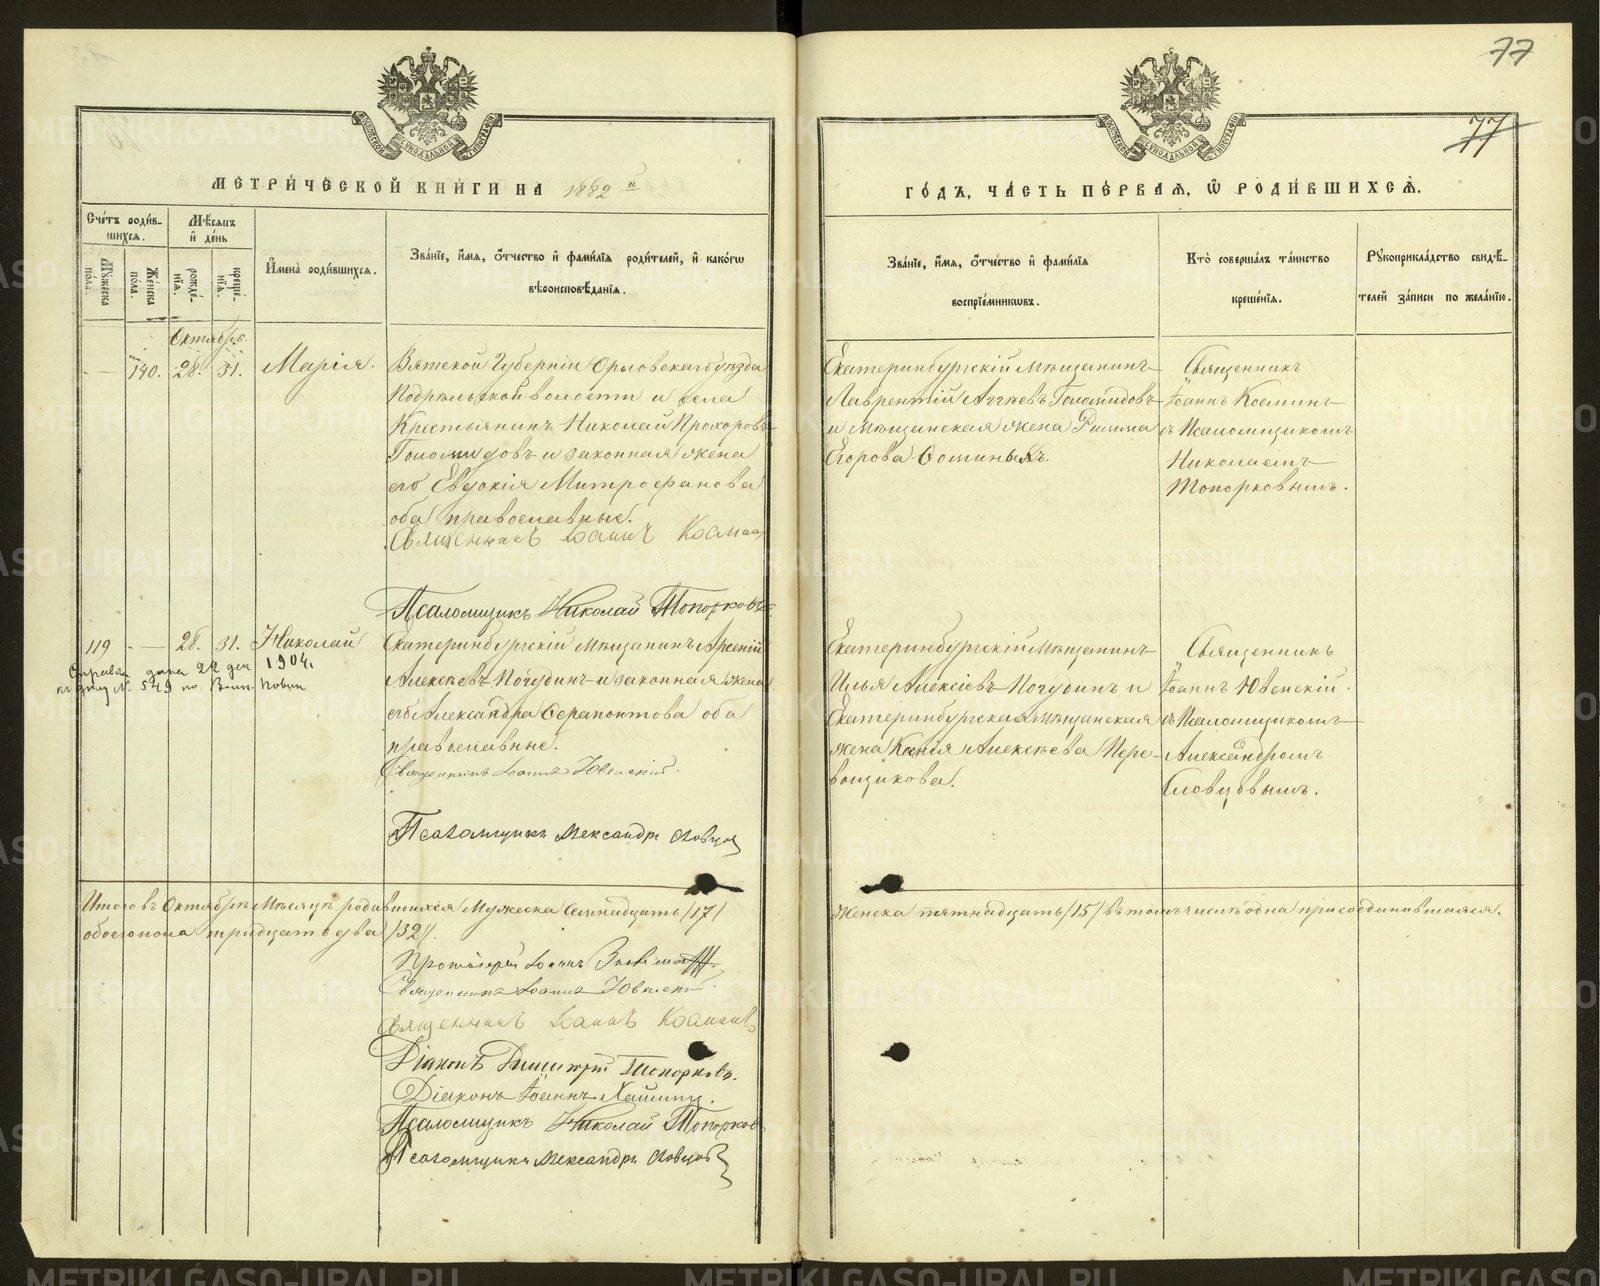 77
77
МЕТРИ́ЧЕСКОЙ КНИ́ГИ НА 1882 й
ГО́ДЪ, ЧА́СТЬ ПЕ́РВАЯ, Ѡ҆ РОДИ́ВШИХСѦ.
Сче́тъ роди́в-
шихся.
Мѣ́сяцъ
и҆ де́нь
Мꙋ́жеска
по́ла.
Же́нска
по́ла.
рожде́-
нїя.
креще́-
нїя.
И҆мена̀ роди́вшихся.
Зва́нїе, и҆́мя, о҆́тчество и҆ фами́лїя роди́телей, и҆ како́гѡ
вѣроисповѣ́данїя.
Зва́нїе, и҆́мя, о҆́тчество и҆ фами́лїя
воспрїе́мникѡвъ.
Кто̀ соверша́лъ та́инство
креще́нїя.
Рꙋкоприкла́дство свидѣ́-
телей за́писи по жела́нїю.
Октябрь.
140. 28. 31. Марія.
Вятской Губерніи Орловскаго уѣзда
волости и села
Крестьянинъ Николай Прохоровъ
и законная жена
его Евдокія Митрофанова
оба православные.
Священникъ Іоаннъ Косминъ
Псаломщикъ Николай Топорковъ
Екатеринбургскій мѣщанинъ
Лаврентій
и Мѣщанская жена
Егорова
Священникъ
Іоаннъ Косминъ
съ Псаломщикомъ
Николаемъ
Топорковымъ.
119 — 28. 31. Николай
Справка дана 22 дек 1904.
Екатеринбургскій мѣщанинъ Арсеній
Алексѣевъ Погудинъ и законная жена
его Александра Серапонтова оба
православные.
Священникъ Іоаннъ Ювенскій.
Псаломщикъ Александръ Словцов
Екатеринбургскій Мѣщанинъ
Илья Алексіевъ Погудинъ и
Екатеринбургская мѣщанская
жена Ксенія Алексѣева Пере-
возщикова.
Священникъ
Іоаннъ Ювенскій.
съ Псаломщикомъ
Александромъ
Словцовымъ.
Итого въ Октябрѣ Мѣсяцѣ родившихся Мужеска Семнадцать /17/
Женска пятнадцать /15/ въ томъ числѣ одна присоединившаяся.
обоего пола тридцать два /32/.
Протоіерей Іоаннъ
Священникъ Іоаннъ Ювенскій.
Священникъ Іоаннъ Косминъ
Діаконъ Димитрій Топорковъ.
Діаконъ Іоаннъ
Псаломщикъ Николай Топорков
Псаломщикъ Александръ Словцов
METRIKI.GASO-URAL.RU